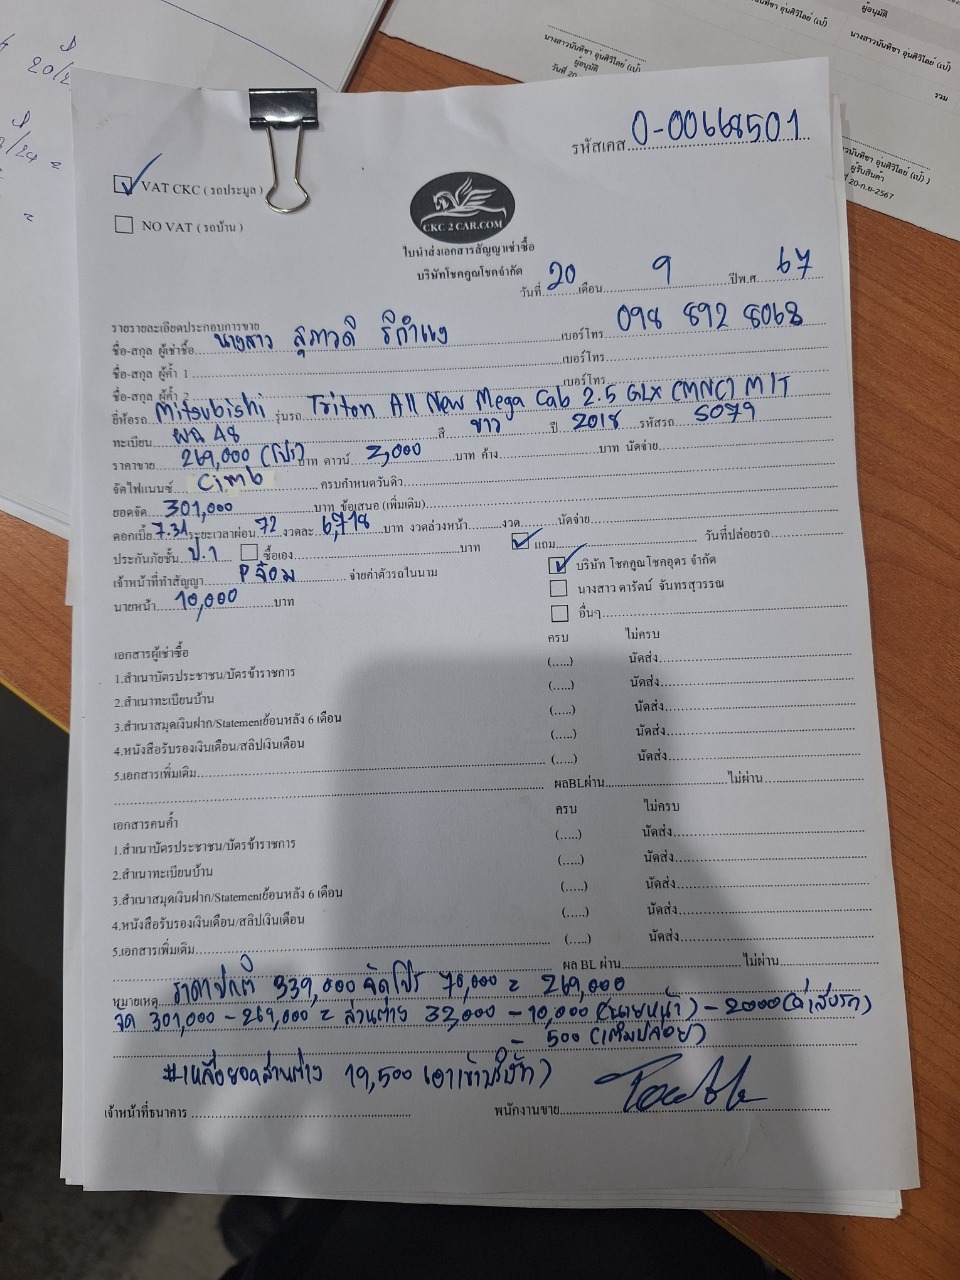 รหัสเคส 0-00668501
VAT CKC ( รถประมูล )
NO VAT ( รถบ้าน )
CKC 2 CAR.COM
ใบนำส่งเอกสารสัญญาเช่าซื้อ
บริษัทโชคคูณโชคจำกัด
วันที่ 20 เดือน 9 ปีพ.ศ. 67
รายรายละเอียดประกอบการขาย
ชื่อ-สกุล ผู้เช่าซื้อ นางสาว สุภาวดี เบอร์โทร 098 892 8068
ชื่อ-สกุล ผู้ค้ำ 1 เบอร์โทร
ชื่อ-สกุล ผู้ค้ำ 2 เบอร์โทร
ยี่ห้อรถ Mitsubishi รุ่นรถ Triton All New Mega Cab 2.5 GLX (MNC) M/T
ทะเบียน ผฉ 48 สี ขาว ปี 2018 รหัสรถ 5079
ราคาขาย 269,000 (โปร) บาท ดาวน์ 2,000 บาท ค้าง บาท นัดจ่าย
จัดไฟแนนซ์ Cimb ครบกำหนดวันดิว
ยอดจัด 301,000 บาท ข้อเสนอ (เพิ่มเติม)
ดอกเบี้ย 7.34 ระยะเวลาผ่อน 72 งวดละ 6,718 บาท งวดล่วงหน้า งวด นัดจ่าย
ประกันภัยชั้น ป.1 ซื้อเอง บาท แถม วันที่ปล่อยรถ
เจ้าหน้าที่ทำสัญญา Pจ๋อม จ่ายค่าตัวรถในนาม บริษัท โชคคูณโชคอุดร จำกัด
นายหน้า 10,000 บาท นางสาว ดารัตน์ จันทรสุวรรณ
อื่นๆ
เอกสารผู้เช่าซื้อ ครบ ไม่ครบ
1.สำเนาบัตรประชาชน/บัตรข้าราชการ (.....) นัดส่ง
2.สำเนาทะเบียนบ้าน (.....) นัดส่ง
3.สำเนาสมุดเงินฝาก/Statementย้อนหลัง 6 เดือน (.....) นัดส่ง
4.หนังสือรับรองเงินเดือน/สลิปเงินเดือน (.....) นัดส่ง
5.เอกสารเพิ่มเติม (.....) นัดส่ง
ผลBLผ่าน ไม่ผ่าน
เอกสารคนค้ำ ครบ ไม่ครบ
1.สำเนาบัตรประชาชน/บัตรข้าราชการ (.....) นัดส่ง
2.สำเนาทะเบียนบ้าน (.....) นัดส่ง
3.สำเนาสมุดเงินฝาก/Statementย้อนหลัง 6 เดือน (.....) นัดส่ง
4.หนังสือรับรองเงินเดือน/สลิปเงินเดือน (.....) นัดส่ง
5.เอกสารเพิ่มเติม (.....) นัดส่ง
ผล BL ผ่าน ไม่ผ่าน
หมายเหตุ ราคาปกติ 339,000 จัดโปร 70,000 = 269,000
จัด 301,000 - 269,000 = ส่วนต่าง 32,000 - 10,000 (นายหน้า) - 2000 (ค่าส่งรถ)
500 (เต็มปล่อย)
#เหลือยอดส่วนต่าง 19,500 (เอาเข้าบริษัท)
เจ้าหน้าที่ธนาคาร พนักงานขาย